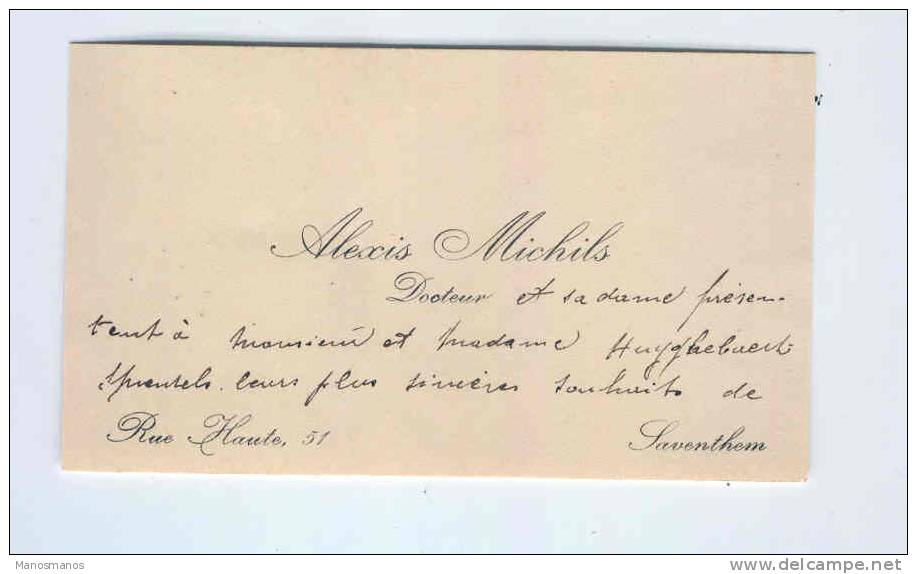 Alexis Michils
Docteur et sa dame présen-
tent à Monsieur et Madame Huyghebaert
leurs plus sincères souhaits de
Rue Haute, 51 Saventhem
Manosmanos
delcampe.net